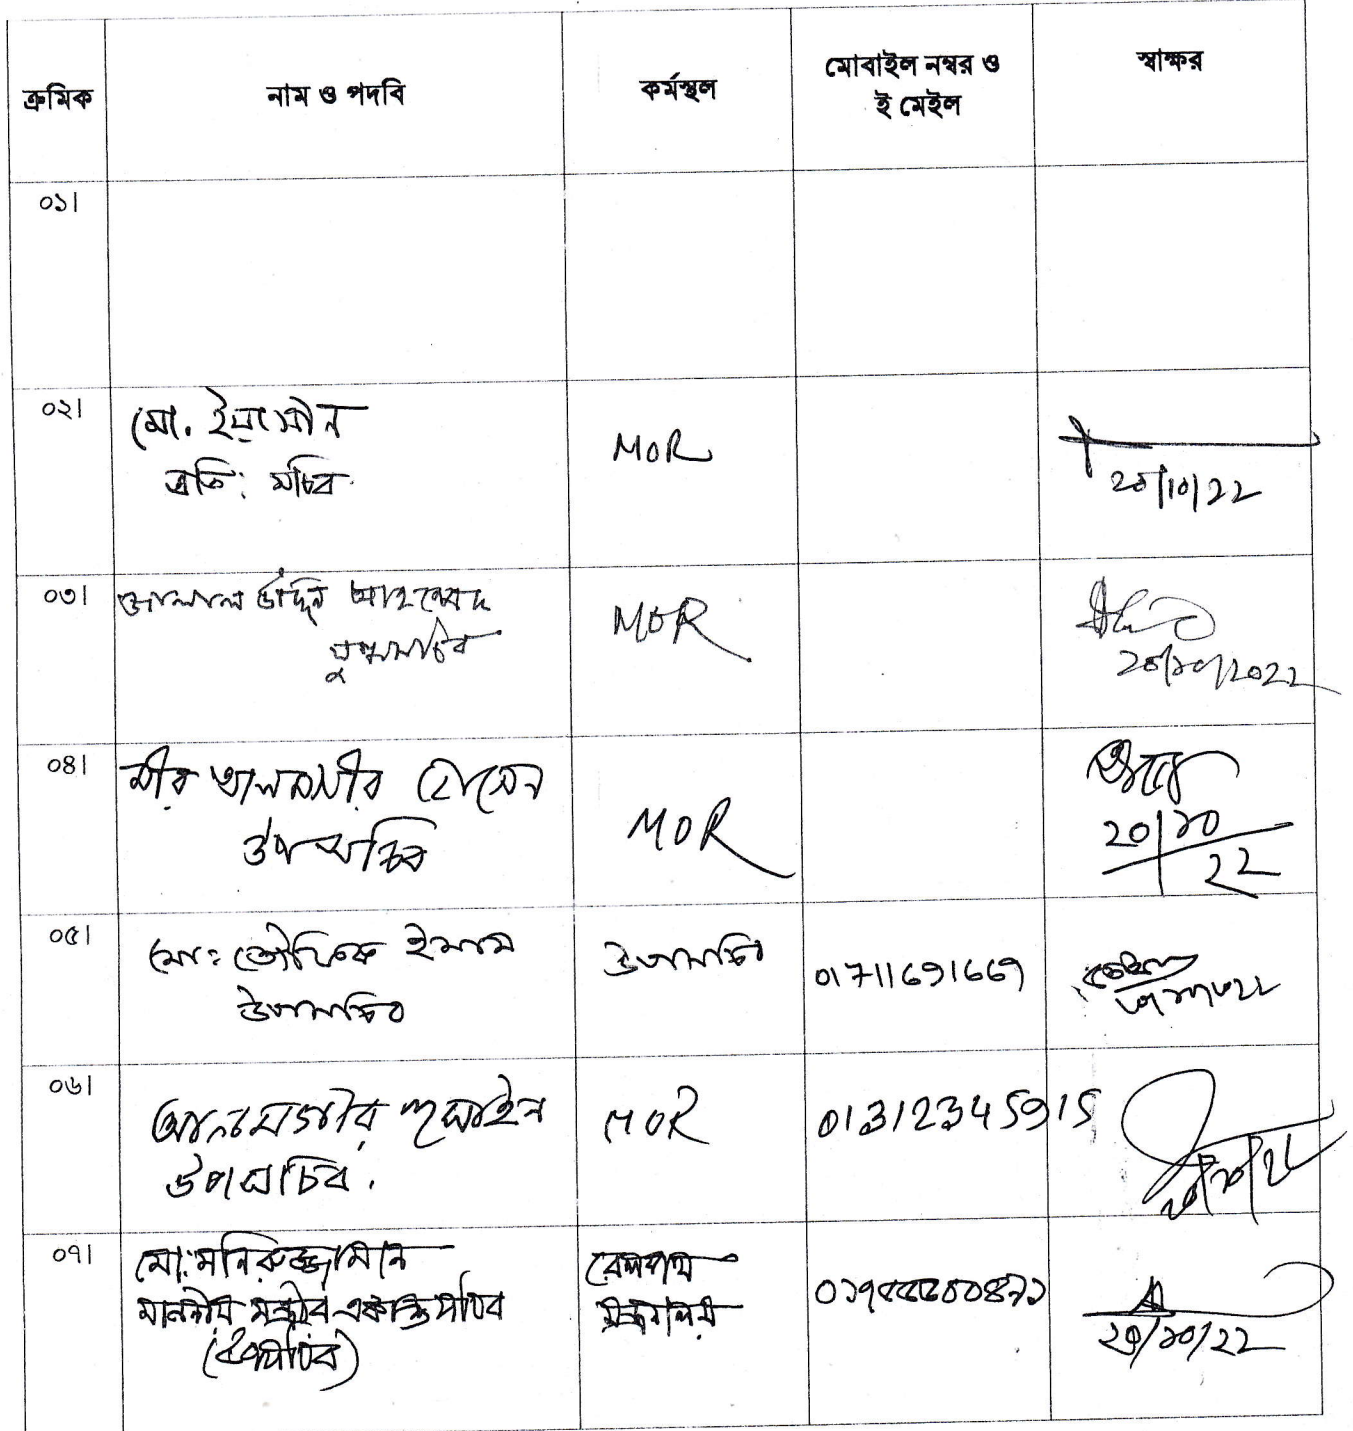 ক্রমিক
নাম ও পদবি
কর্মস্থল
মোবাইল নম্বর ও
ই মেইল
স্বাক্ষর
০১।
০২।
মো. ইয়াসীন
অতি: সচিব
MOR
২০/10/22
০৩।
জালাল উদ্দিন আহম্মেদ
যুগ্মসচিব
MOR
২০/১০/২০২২
০৪।
মীর আলমগীর হোসেন
উপসচিব
MOR
২০/১০
২২
০৫।
মো: তৌফিক ইমাম
উপসচিব
উপসচিব
01711691669
০৬।
আলমগীর হুছাইন
উপসচিব.
MOR
01312345915
২০/১০/২২
০৭।
মো: মনিরুজ্জামান
মাননীয় মন্ত্রীর একান্ত সচিব
(উপসচিব)
রেলপথ
মন্ত্রণালয়
২০/১০/২২